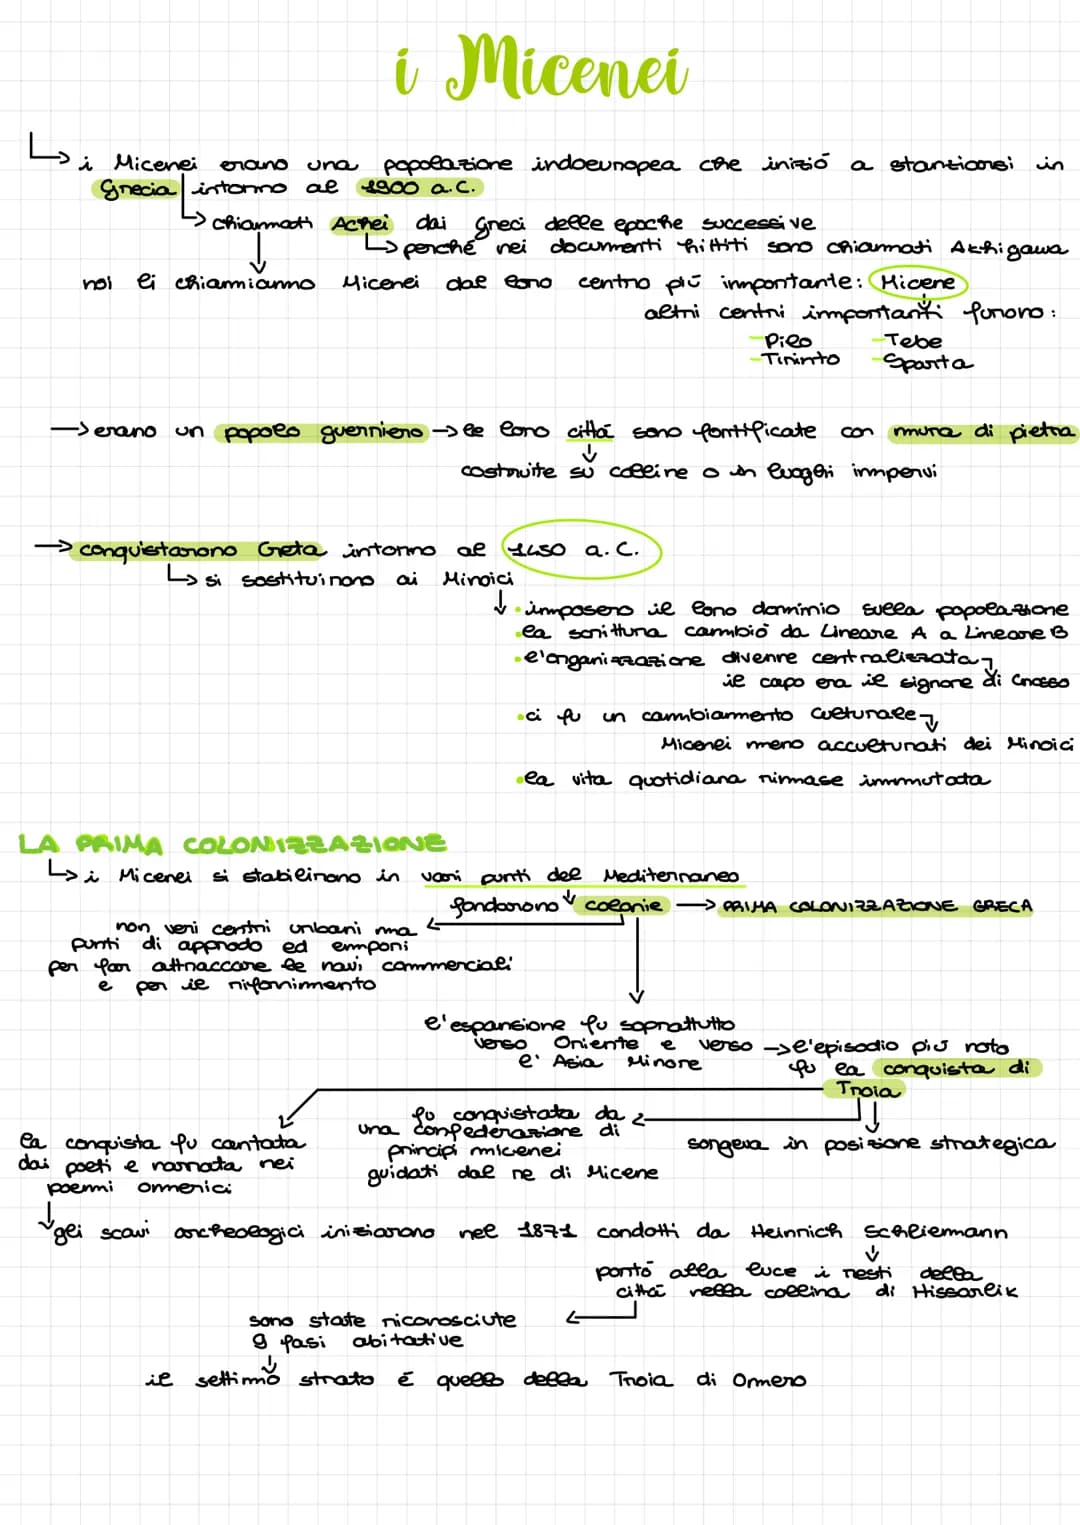 i Micenei
i Micenei erano una popolazione indoeuropea che iniziò a stanziarsi in
Grecia intorno al 1900 a.C.
chiamati Achei dai Greci delle epoche successive
perché nei documenti hittiti sono chiamati Akhigawa
noi li chiamiamo Micenei dal loro centro più importante: Micene
altri centri importanti furono:
-Pilo -Tebe
-Tirinto -Sparta
erano un popolo guerriero → le loro città sono fortificate con mura di pietra
costruite su colline o in luoghi impervi
conquistarono Creta intorno al 1450 a.C.
si sostituirono ai Minoici
• imposero il loro dominio sulla popolazione
• la scrittura cambiò da Lineare A a Lineare B
• l'organizzazione divenne centralizzata
il capo era il signore di Cnosso
• ci fu un cambiamento culturale
Micenei meno acculturati dei Minoici
• la vita quotidiana rimase immutata
LA PRIMA COLONIZZAZIONE
i Micenei si stabilirono in vari punti del Mediterraneo
fondarono colonie → PRIMA COLONIZZAZIONE GRECA
non veri centri urbani ma
punti di approdo ed empori
per far attraccare le navi commerciali
e per il rifornimento
l'espansione fu soprattutto
verso Oriente e verso → l'episodio più noto
l'Asia Minore fu la conquista di
Troia
fu conquistata da
una confederazione di
principi micenei
guidati dal re di Micene
sorgeva in posizione strategica
la conquista fu cantata
dai poeti e narrata nei
poemi omerici
gli scavi archeologici iniziarono nel 1871 condotti da Heinrich Schliemann
portò alla luce i resti della
città nella collina di Hissarlik
sono state riconosciute
9 fasi abitative
il settimo strato è quello della Troia di Omero